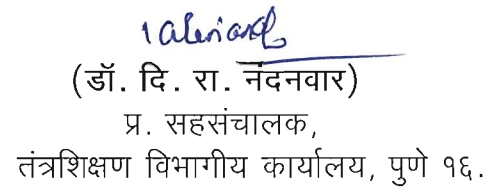 (डॉ. दि. रा. नंदनवार)
प्र. सहसंचालक,
तंत्रशिक्षण विभागीय कार्यालय, पुणे १६.